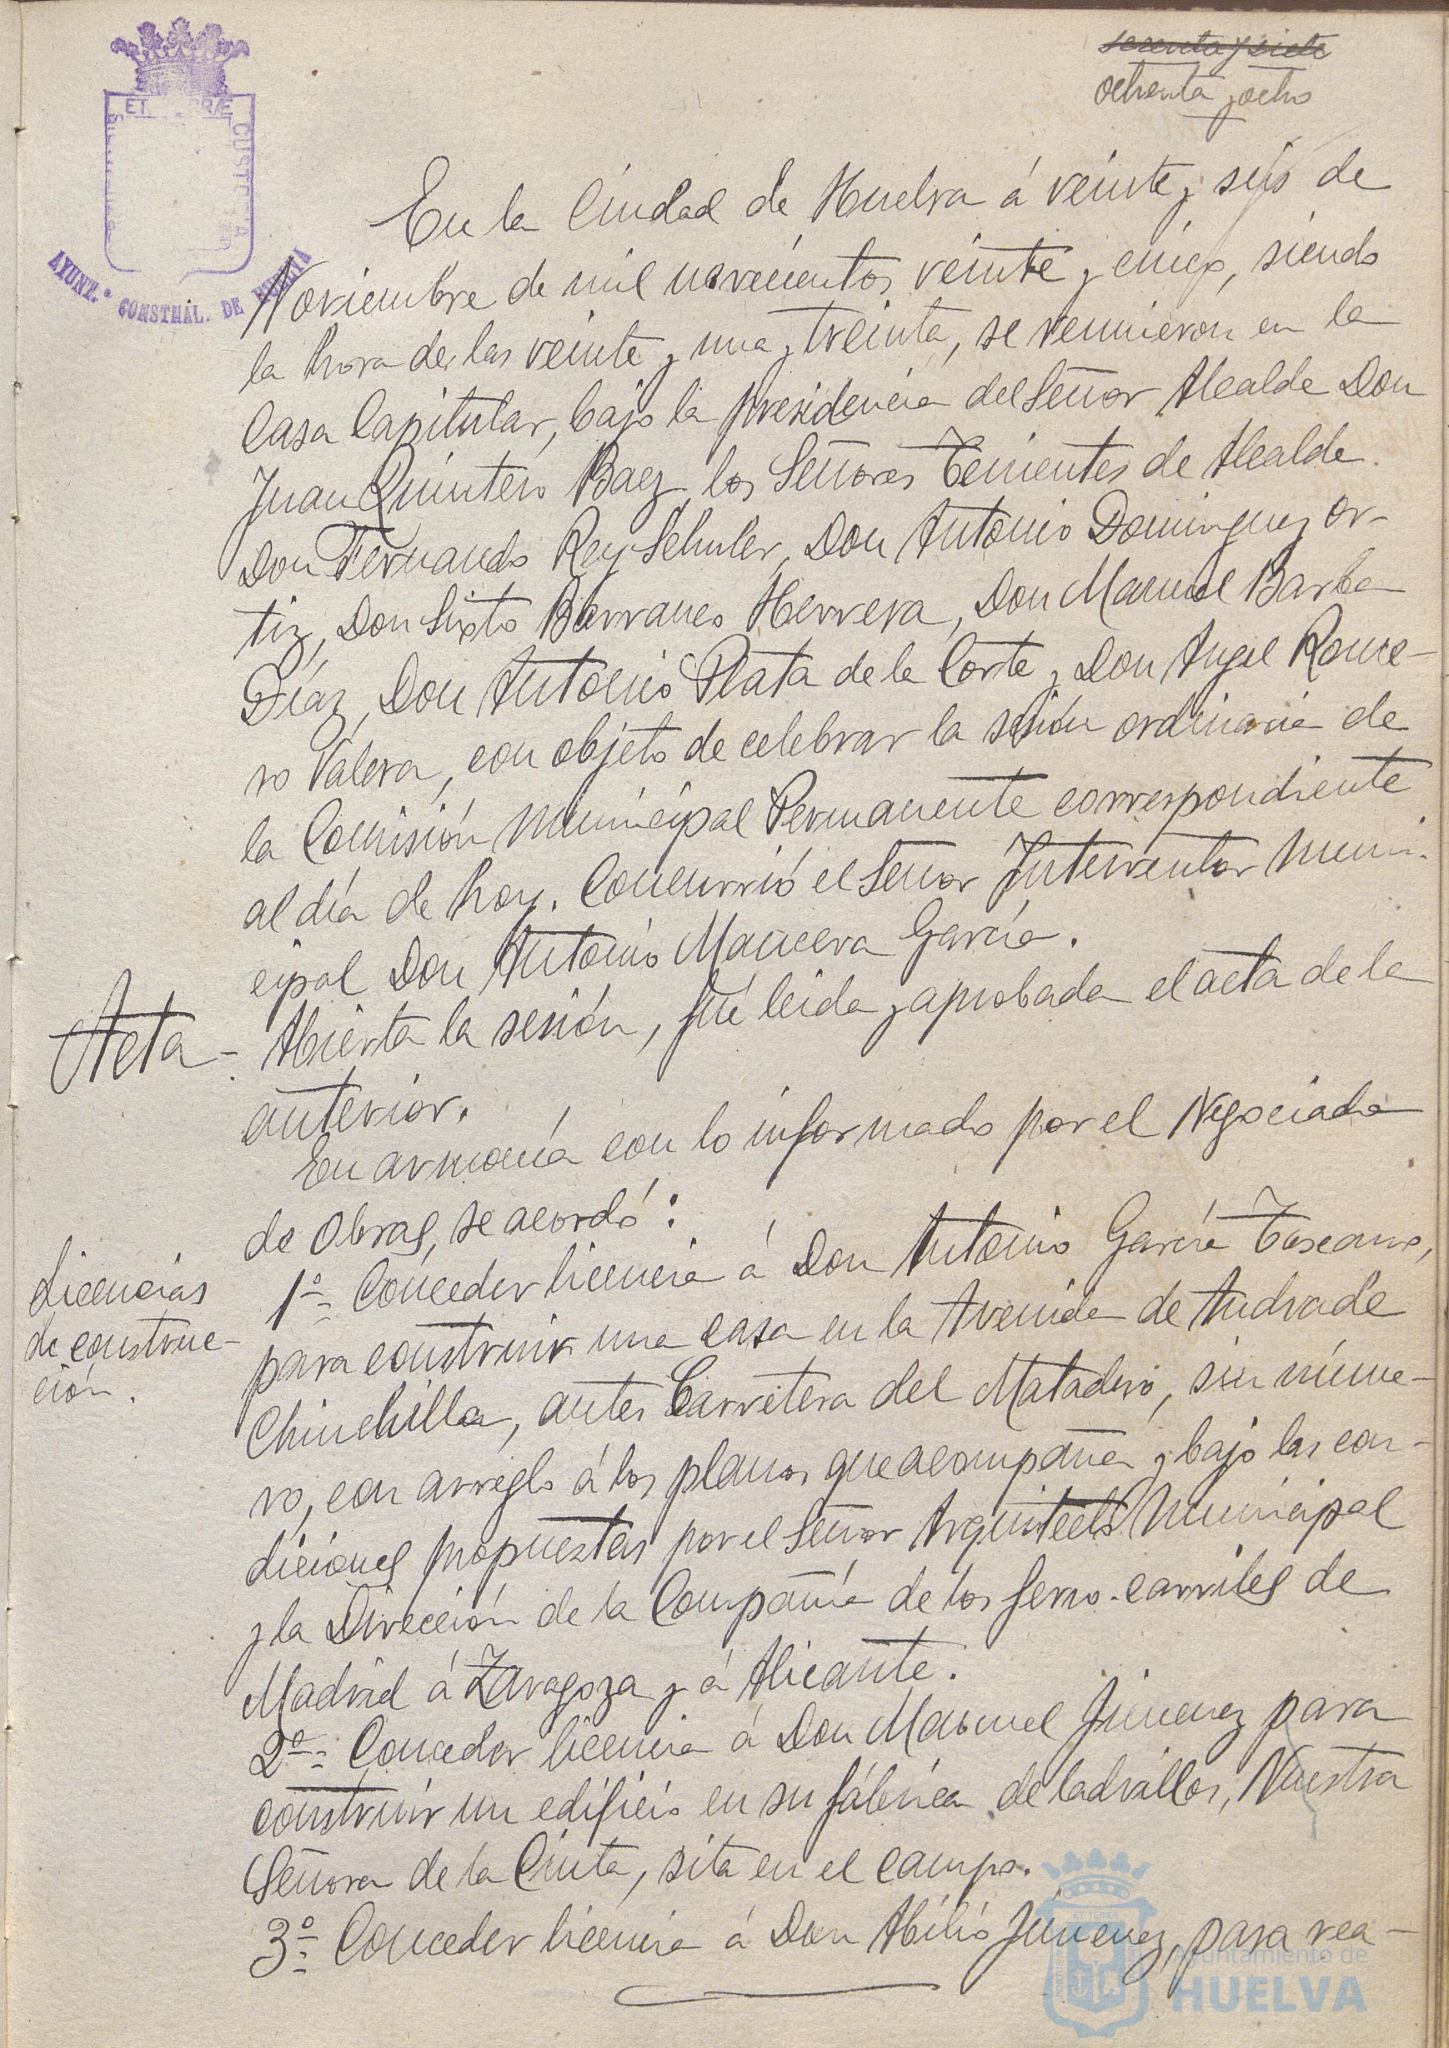 setenta y siete
ochenta y ocho
ET TERRÆ CUSTO
AYUNT.º CONSTNAL. DE HUELVA
En la Ciudad de Huelva á veinte y seis de
Noviembre de mil novecientos veinte y cinco, siendo
la hora de las veinte y una y treinta, se reunieron en la
Casa Capitular, bajo la presidencia del Señor Alcalde Don
Juan Quintero Baez, los Señores Tenientes de Alcalde
Don Fernando Rey Schuler, Don Antonio Dominguez Or-
tiz, Don Sixto Barranco Herrera, Don Manuel Barba
Díaz, Don Antonio Plata de la Corte y Don Angel Rome-
ro Valera, con objeto de celebrar la sesión ordinaria de
la Comisión Municipal Permanente correspondiente
al día de hoy. Concurrió el Señor Interventor Muni-
cipal Don Antonio Mancera García.
Acta -
Abierta la sesión, fué leida y aprobada el acta de la
anterior.
En armonía con lo informado por el Negociado
de Obras, se acordó:
Licencias
de construc-
ción.
1º- Conceder licencia á Don Antonio García Toscano,
para construir una casa en la Avenida de Andrade
Chinchilla, antes Carretera del Matadero, sin núme-
ro, con arreglo á los planos que acompaña y bajo las con-
diciones propuestas por el Señor Arquitecto Municipal
y la Dirección de la Compañía de los ferro-carriles de
Madrid á Zaragoza y á Alicante.
2º- Conceder licencia á Don Manuel Jimenez para
construir un edificio en su fábrica de ladrillos, Nuestra
Señora de la Cinta, sita en el campo.
3º- Conceder licencia á Don Abilio Jimenez, para rea-
Ayuntamiento de
HUELVA